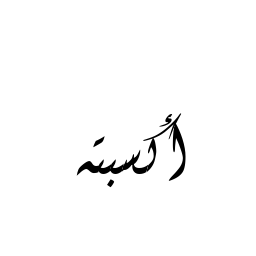 أكسبته